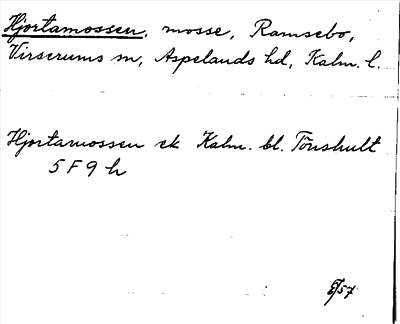 Hjortamossen, mosse, Ramsebo,
Virserums sn, Aspelands hd, Kalm. l.
Hjortamossen ek Kalm. bl. Tönshult
5 F 9 h
57